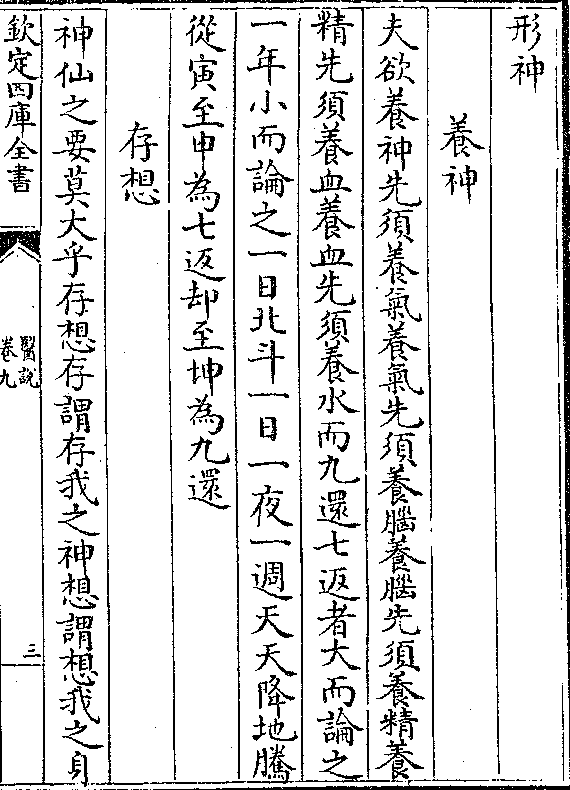 形神
養神
夫欲養神先須養氣養氣先須養腦養腦先須養精養
精先須養血養血先須養水而九還七返者大而論之
一年小而論之一日北斗一日一夜一週天天降地騰
從寅至申為七返却至坤為九還
存想
神仙之要莫大乎存想存謂存我之神想謂想我之身
欽定四庫全書
醫說
卷九
三